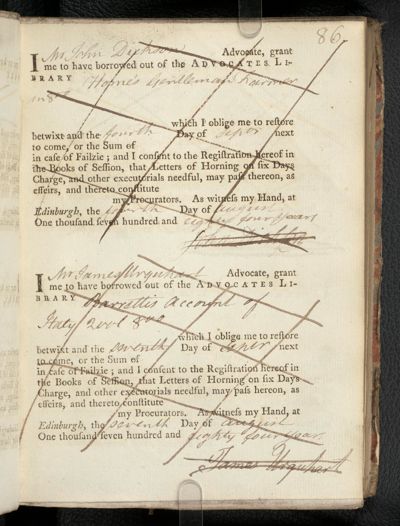 86
I Mr John Dickson Advocate, grant
me to have borrowed out of the ADVOCATES LI-
BRARY Home's Gentleman Farmer
in 8vo
which I oblige me to reſtore
betwixt and the fourth Day of next
to come, or the Sum of
in caſe of Failzie; and I conſent to the Regiſtration hereof in
the Books of Seſſion, that Letters of Horning on ſix Days
Charge, and other executorials needful, may paſs thereon, as
effeirs, and thereto conſtitute
my Procurators. As witneſs my Hand, at
Edinburgh, the fourth Day of august
One thouſand ſeven hundred and eighty four years
John Dickson
I Mr James Urquhart Advocate, grant
me to have borrowed out of the ADVOCATES LI-
BRARY Barretti's Account of
Italy 2 vol 8vo
which I oblige me to reſtore
betwixt and the seventh Day of next
to come, or the Sum of
in caſe of Failzie; and I conſent to the Regiſtration hereof in
the Books of Seſſion, that Letters of Horning on ſix Days
Charge, and other executorials needful, may paſs hereon, as
effeirs, and thereto conſtitute
my Procurators. As witneſs my Hand, at
Edinburgh, the seventh Day of august
One thouſand ſeven hundred and eighty four years
James Urquhart